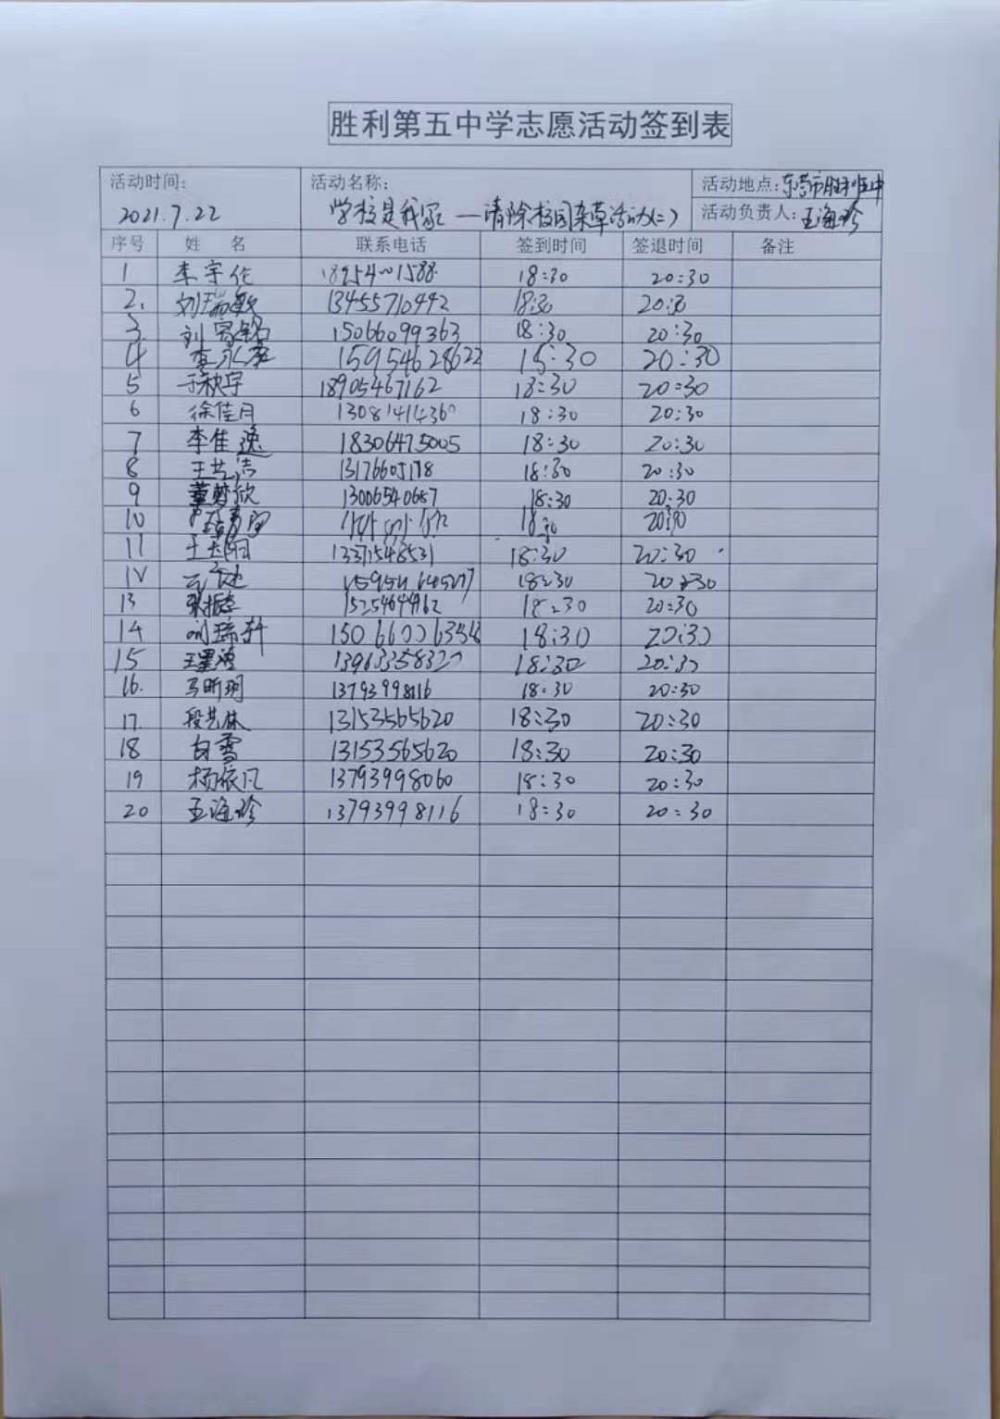 胜利第五中学志愿活动签到表
活动时间: 活动名称: 活动地点:东营市胜利五中
2021.7.22 学校是我家——清除校园杂草活动(二) 活动负责人:王海珍
序号 姓名 联系电话 签到时间 签退时间 备注
1 李宇伦 1588 18:30 20:30
2. 刘瑞敏 13455710492 18:30 20:30
3 刘 15066099363 18:30 20:30
4 李 15954628622 15:30 20:30
5 于秋宇 18905467162 18:30 20:30
6 徐佳月 18:30 20:30
7 李佳逸 18306475005 18:30 20:30
8 王艺洁 18:30 20:30
9 董梦欣 13006540687 18:30 20:30
10 18:30 20:30
11 13371548531 18:30 20:30
12 18:30 20:30
13 张振 18:30 20:30
14 刘瑞轩 18:30 20:30
15 18:30 20:30
16. 马昕玥 13793998116 18:30 20:30
17. 段艺林 13153565620 18:30 20:30
18 白雪 13153565620 18:30 20:30
19 杨依凡 13793998060 18:30 20:30
20 王海珍 13793998116 18:30 20:30